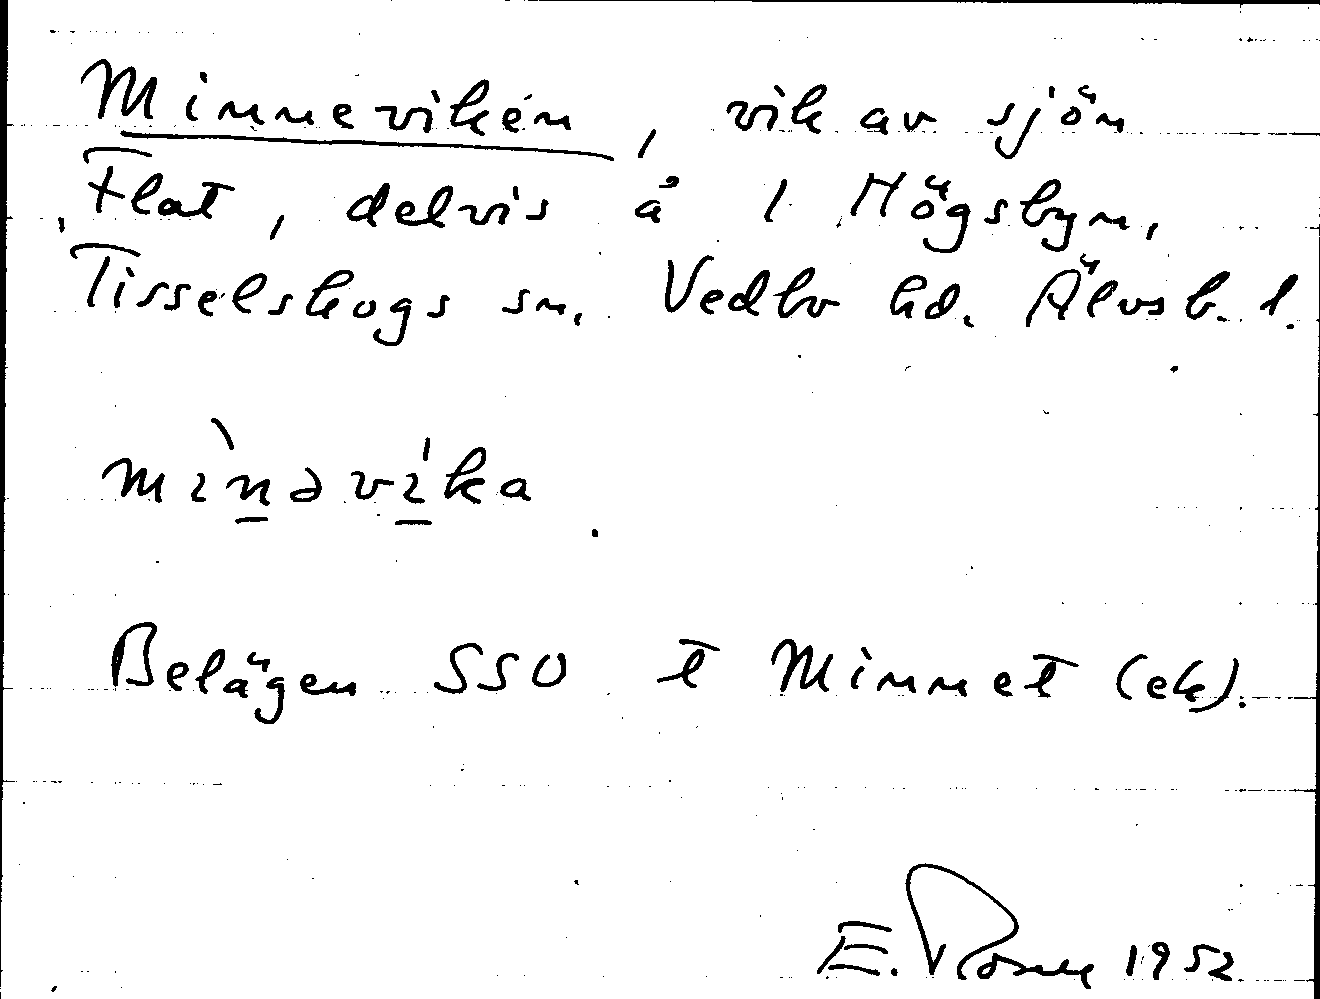 Minneviken, vik av sjön
Flat, delvis å 1 Högsbyn,
Tisselskogs sn. Vedbo hd. Älvsb. l.
mìnəvíka
Belägen SSO t Minnet (ek).
E. 1952